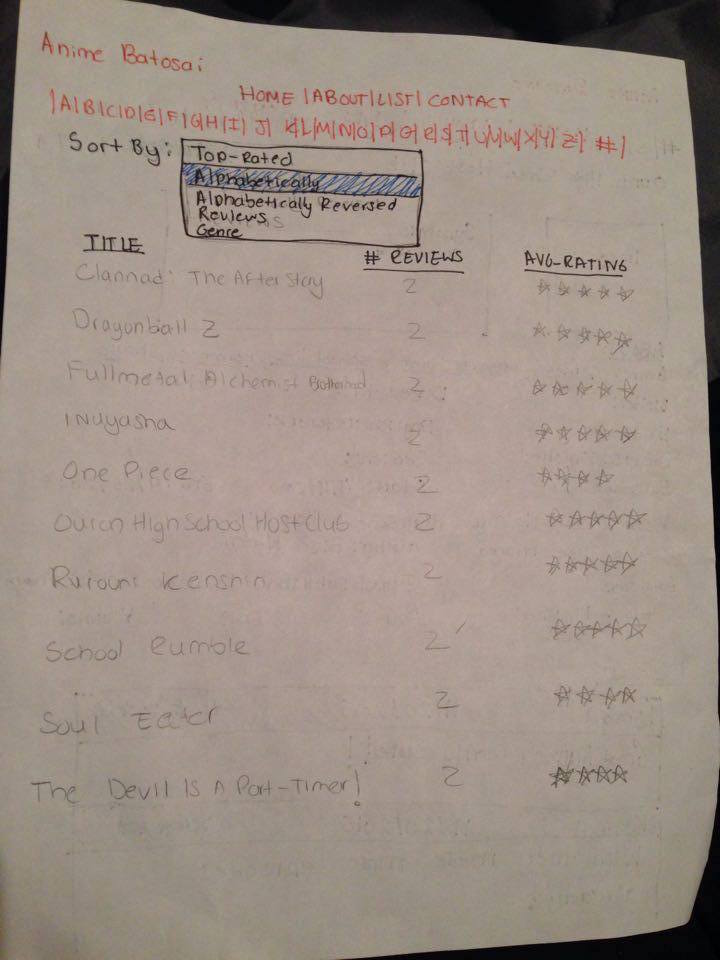 Anime Batosai
HOME |ABOUT|LIST| CONTACT
|A|B|C|D|E|F|G|H|I| J| K|L|M|N|O|P|Q|R|S|T|U|V|W|X|Y|Z| #|
Sort By: Top-Rated
Alphabetically
Alphabetically Reversed
Reviews
Genre
TITLE # REVIEWS AVG-RATING
Clannad: The After Story 2 ☆☆☆☆☆
Dragonball Z 2 ☆☆☆☆☆
Fullmetal Alchemist Brotherhood 2 ☆☆☆☆☆
Inuyasha 2 ☆☆☆☆☆
One Piece 2 ☆☆☆☆
Ouran High School Host Club 2 ☆☆☆☆☆
Rurouni Kenshin 2 ☆☆☆☆☆
School Rumble 2 ☆☆☆☆☆
Soul Eater 2 ☆☆☆☆
The Devil Is A Part-Timer! 2 ☆☆☆☆